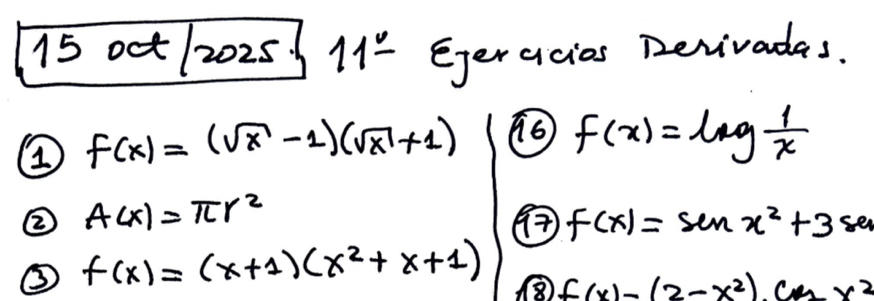 15 oct/2025. 11º Ejercicios Derivadas.
① f(x) = (√x - 1)(√x + 1)
② A(x) = πr²
③ f(x) = (x+1)(x² + x + 1)
⑯ f(x) = log 1/x
⑰ f(x) = sen x² + 3 sen
⑱ f(x) = (2 - x²). cos x²